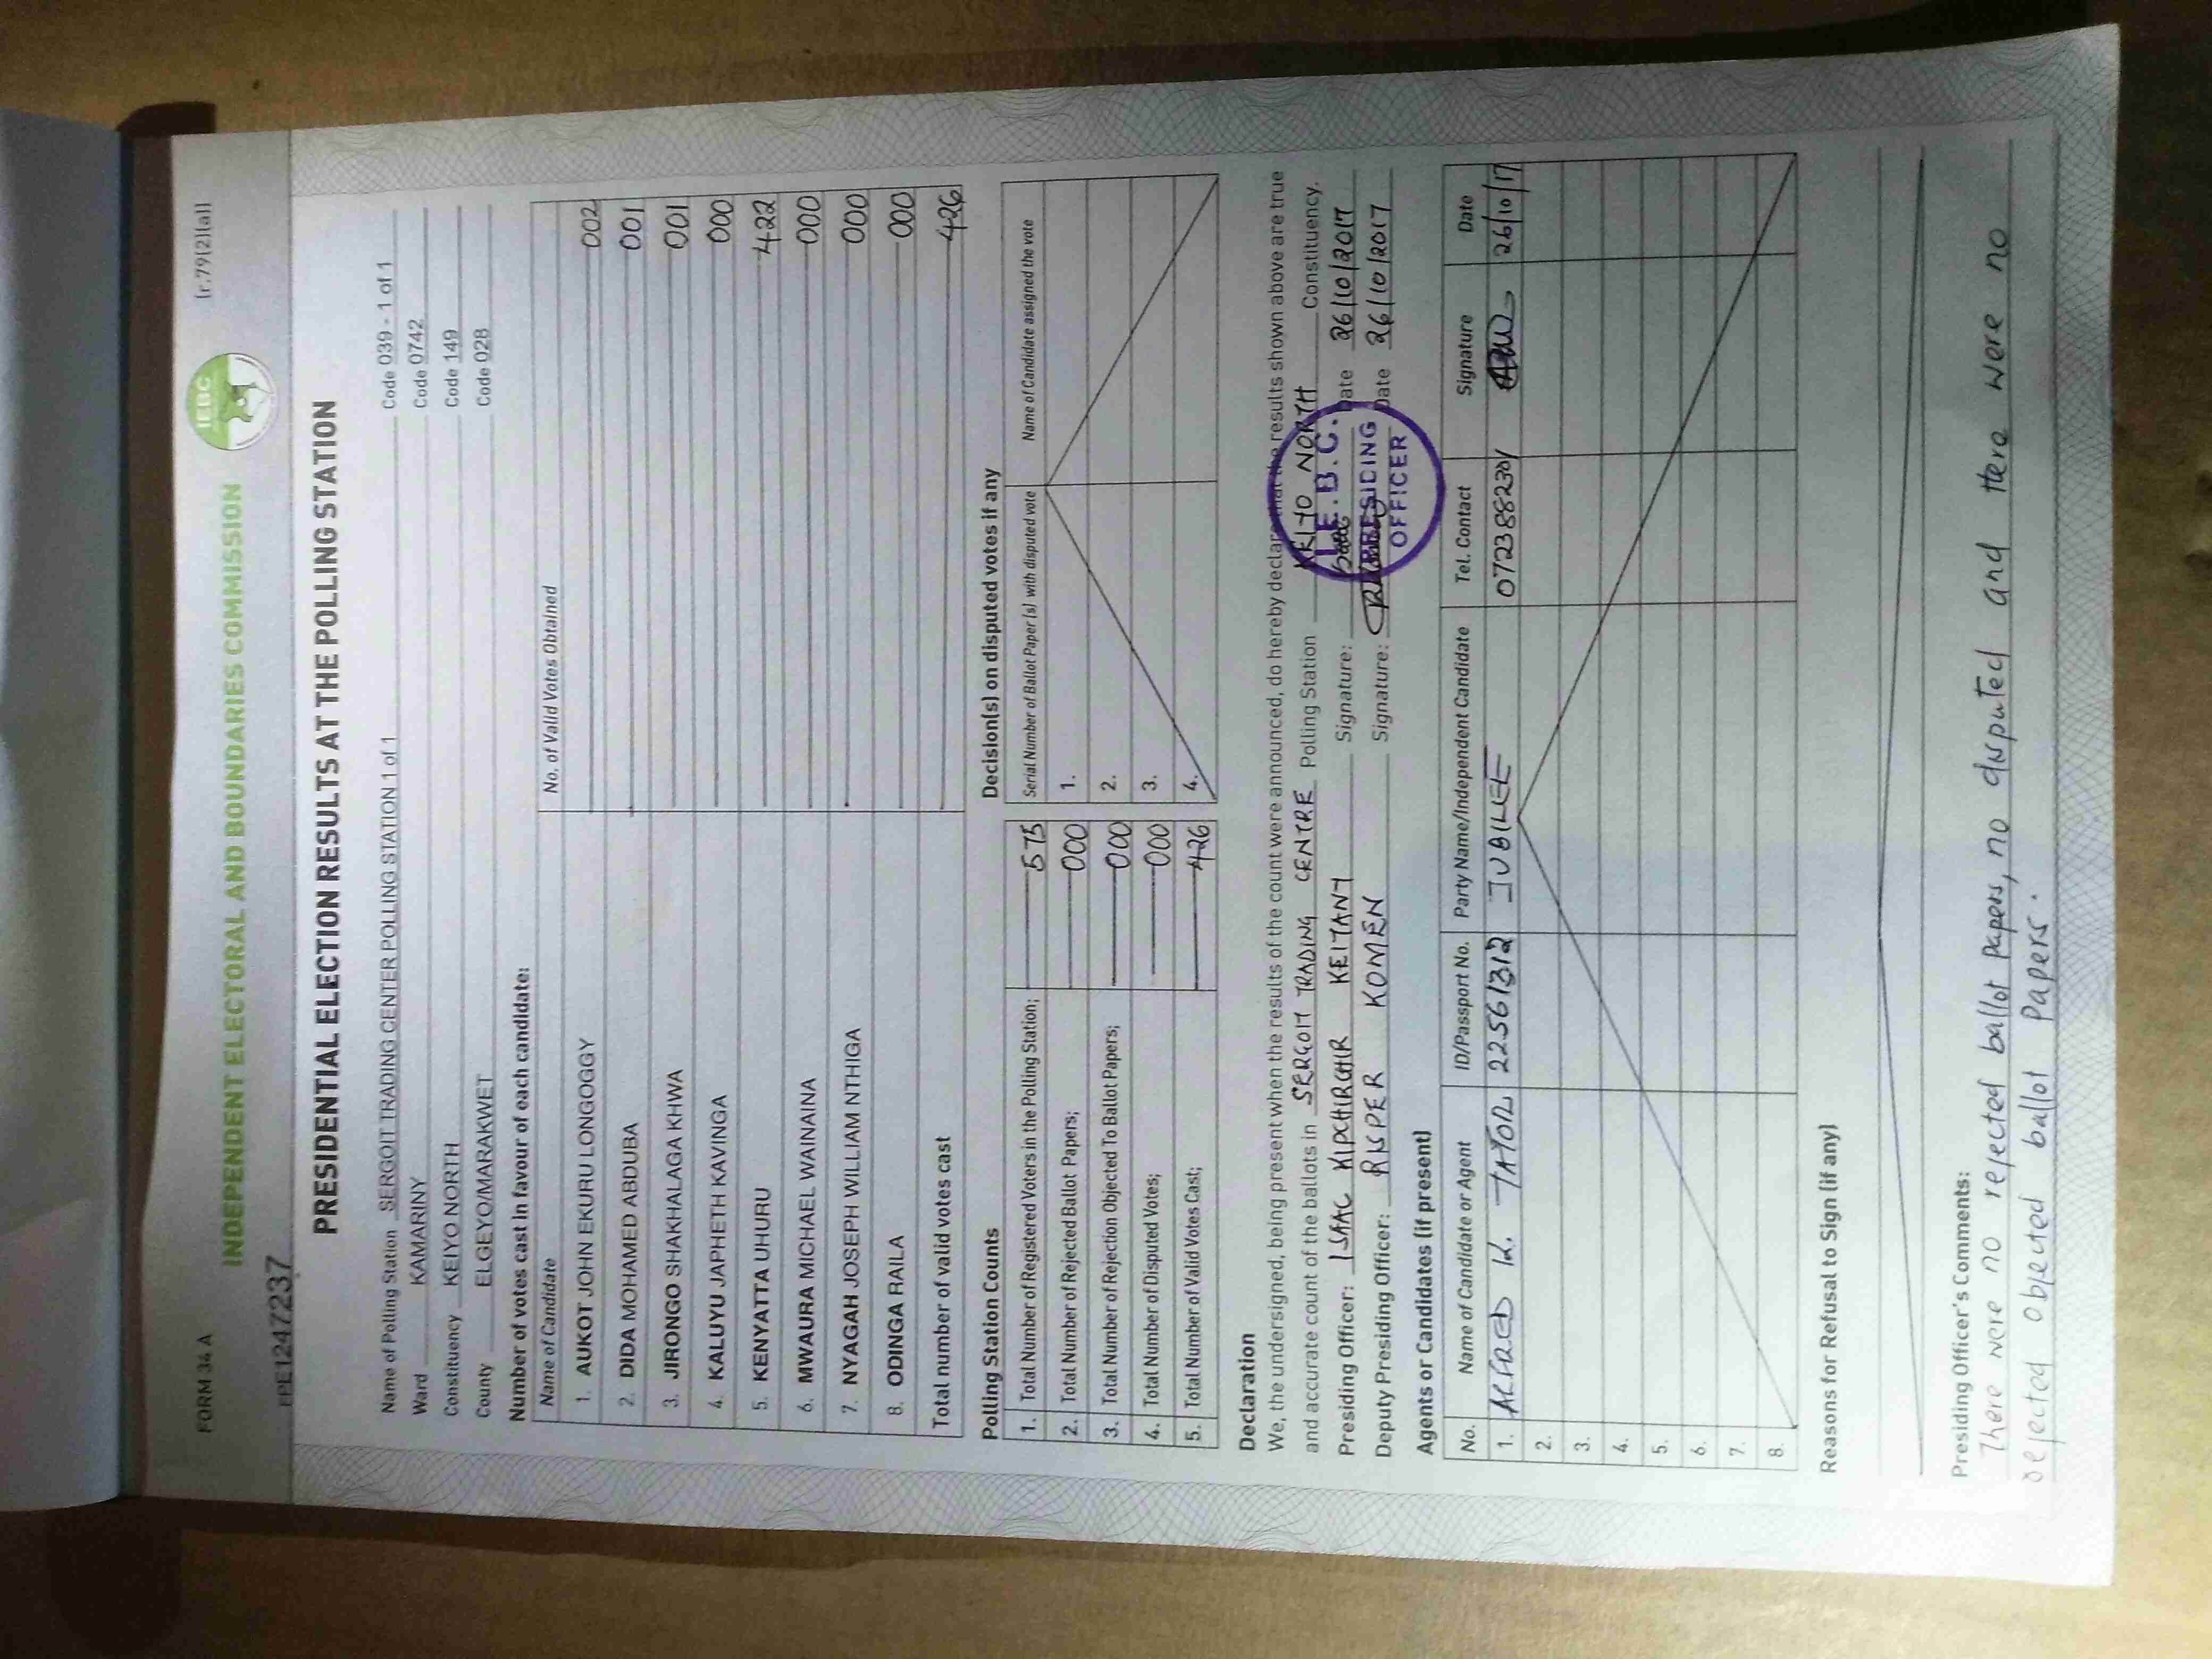 FORM 34 A
(r.79(2)(a))
INDEPENDENT ELECTORAL AND BOUNDARIES COMMISSION
IEBC
PPE1247237
PRESIDENTIAL ELECTION RESULTS AT THE POLLING STATION
Name of Polling Station SERGOIT TRADING CENTER POLLING STATION 1 of 1 Code 039 - 1 of 1
Ward KAMARINY Code 0742
Constituency KEIYO NORTH Code 149
County ELGEYO/MARAKWET Code 028
Number of votes cast in favour of each candidate:
Name of Candidate No. of Valid Votes Obtained
1. AUKOT JOHN EKURU LONGOGGY 002
2. DIDA MOHAMED ABDUBA 001
3. JIRONGO SHAKHALAGA KHWA 001
4. KALUYU JAPHETH KAVINGA 000
5. KENYATTA UHURU 422
6. MWAURA MICHAEL WAINAINA 000
7. NYAGAH JOSEPH WILLIAM NTHIGA 000
8. ODINGA RAILA 000
Total number of valid votes cast 426
Polling Station Counts
1. Total Number of Registered Voters in the Polling Station; 575
2. Total Number of Rejected Ballot Papers; 000
3. Total Number of Rejection Objected To Ballot Papers; 000
4. Total Number of Disputed Votes; 000
5. Total Number of Valid Votes Cast; 426
Decision(s) on disputed votes if any
Serial Number of Ballot Paper (s) with disputed vote Name of Candidate assigned the vote
1.
2.
3.
4.
Declaration
We, the undersigned, being present when the results of the count were announced, do hereby declare that the results shown above are true
and accurate count of the ballots in SERGOIT TRADING CENTRE Polling Station KEIYO NORTH Constituency.
Presiding Officer: ISAAC KIPCHIRCHIR KEITANY Signature: Date 26/10/2017
Deputy Presiding Officer: RISPER KOMEN Signature: Date 26/10/2017
I.E.B.C.
PRESIDING
OFFICER
Agents or Candidates (if present)
No. Name of Candidate or Agent ID/Passport No. Party Name/Independent Candidate Tel. Contact Signature Date
1. ALFRED K. TAYOR 22561312 JUBILEE 0723888230 26/10/17
2.
3.
4.
5.
6.
7.
8.
Reasons for Refusal to Sign (if any)
Presiding Officer's Comments:
There were no rejected ballot papers, no disputed and there were no
rejected objected ballot papers.